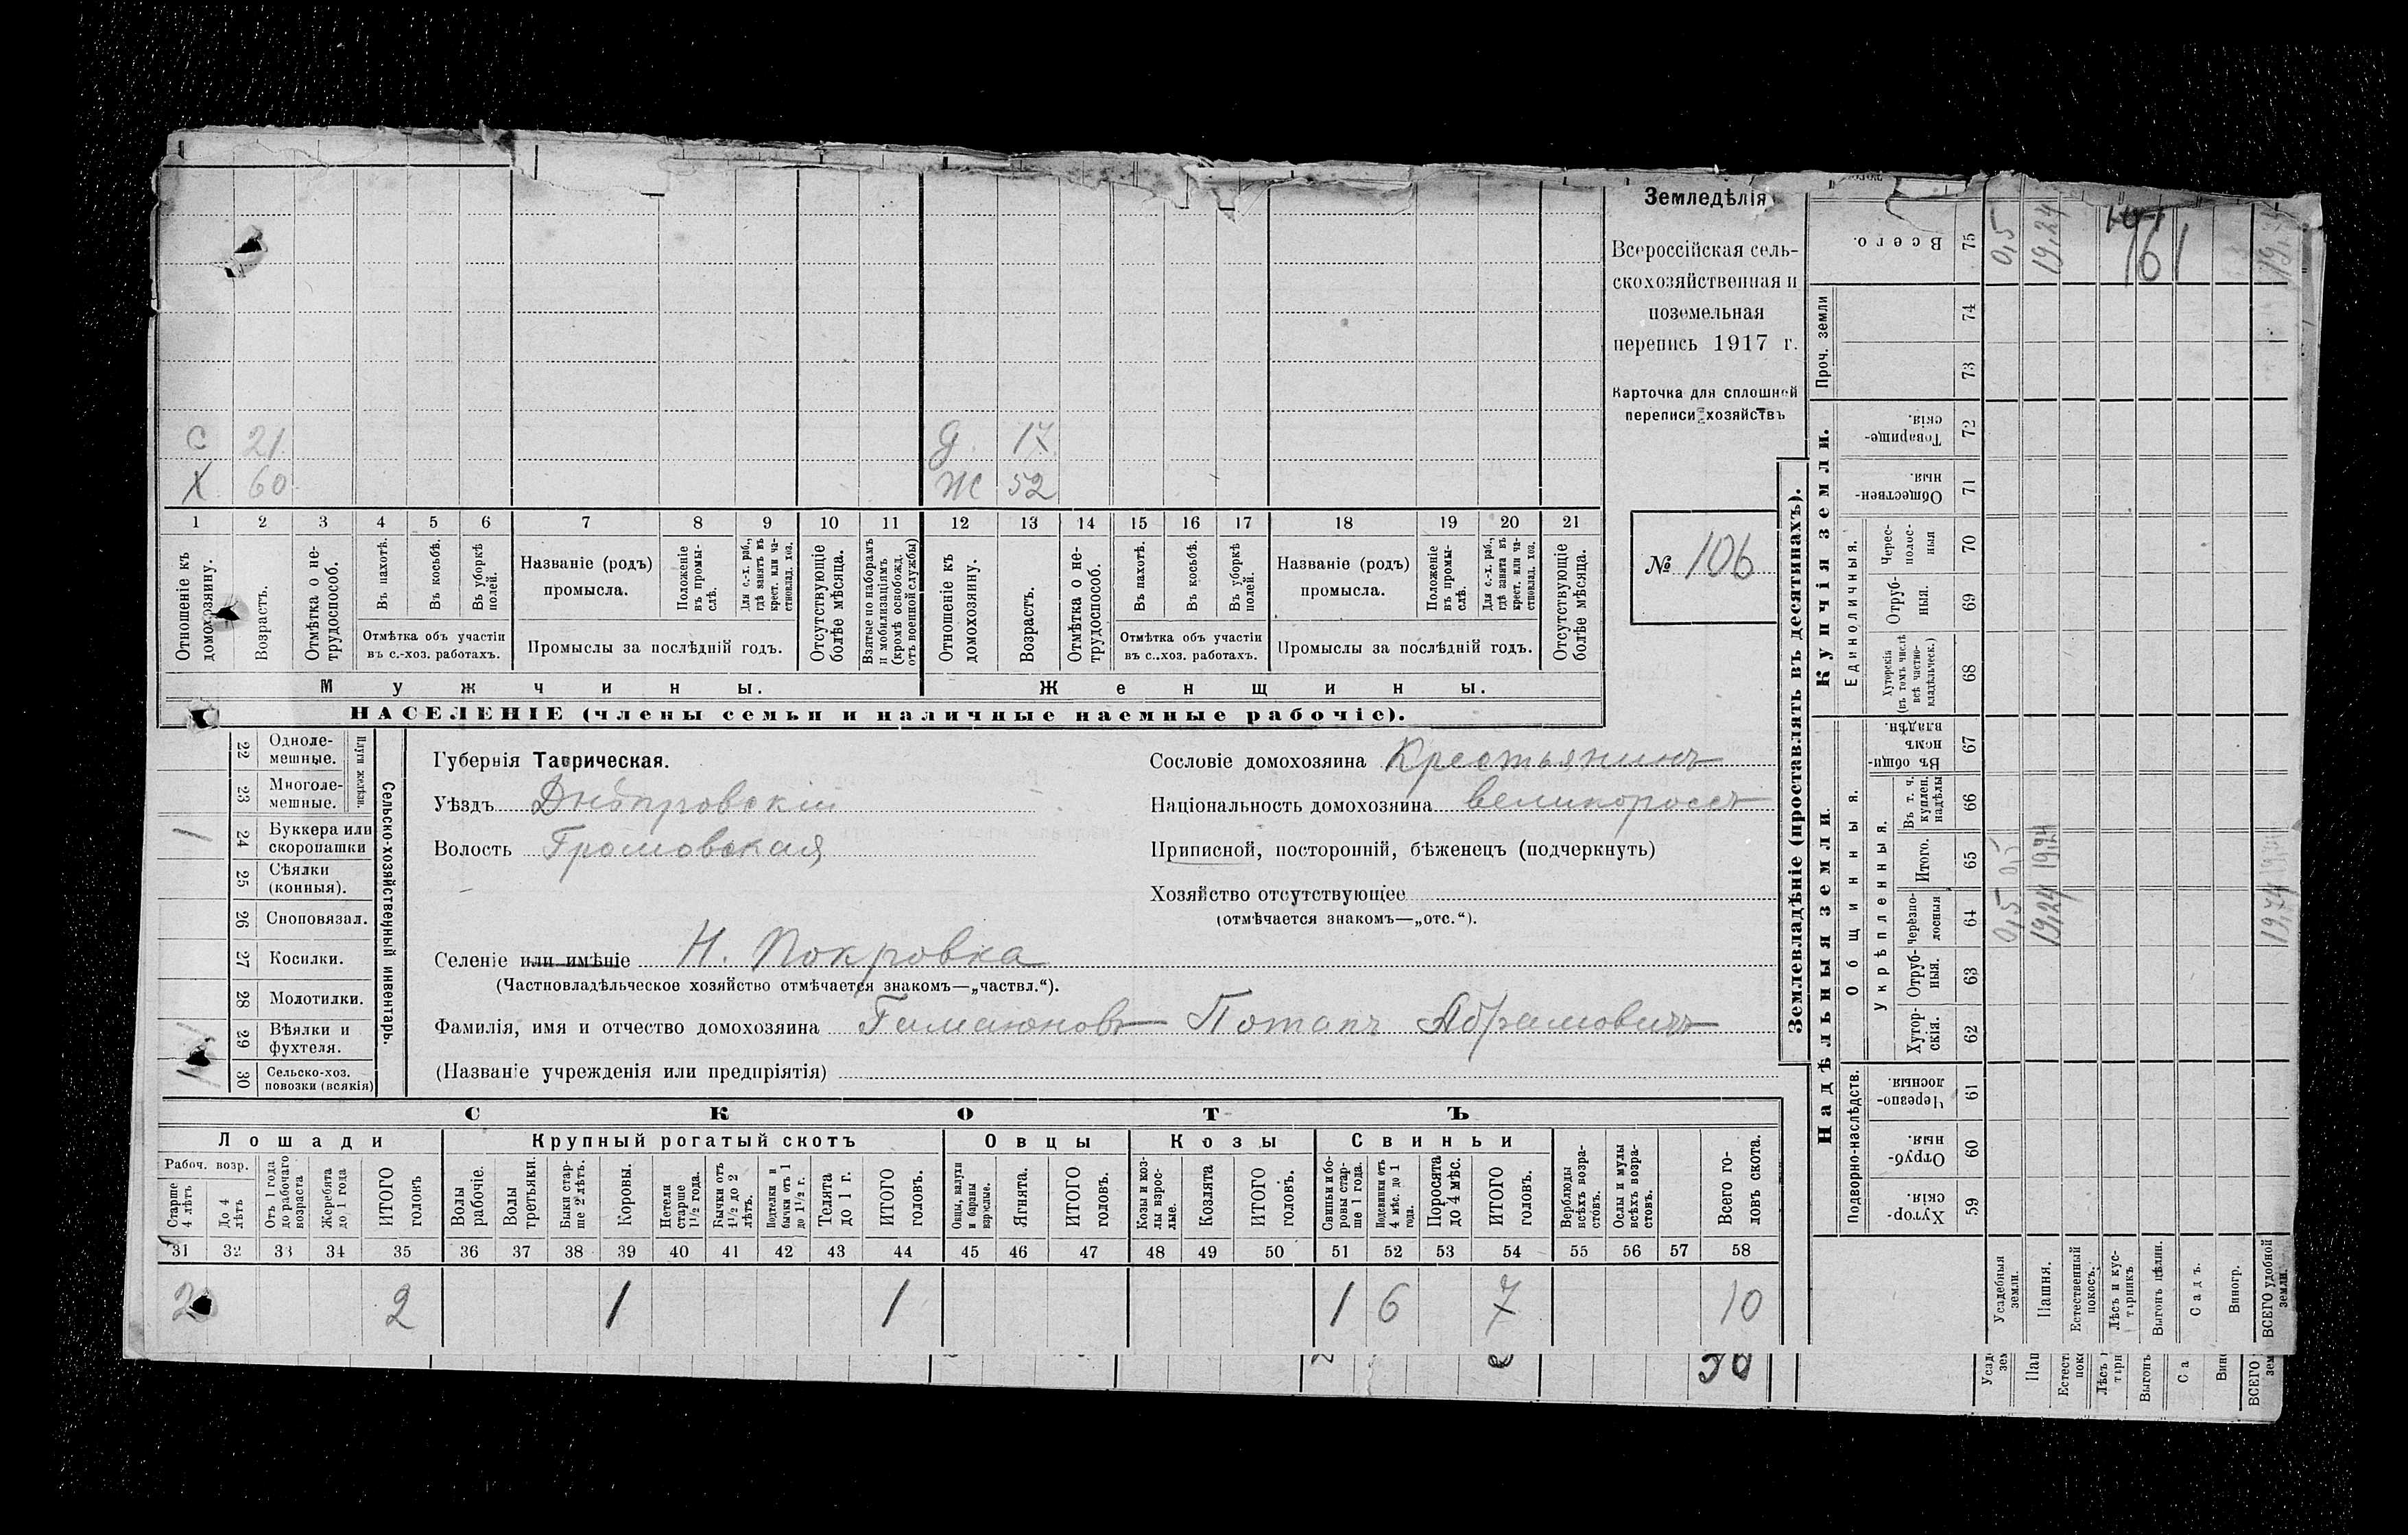 С 21 Д. 17
Х 60 Ж 52
1 2 3 4 5 6 7 8 9 10 11 12 13 14 15 16 17 18 19 20 21
Отношеніе къ домохозяину.
Возрастъ.
Отмѣтка о нетрудоспособ.
Въ пахотѣ.
Въ косьбѣ.
Въ уборкѣ полей.
Отмѣтка объ участіи
въ с.-хоз. работахъ.
Названіе (родъ)
промысла.
Положеніе въ промыслѣ.
Для с.-х. раб., гдѣ занятъ въ крест. или частновлад. хоз.
Промыслы за послѣдній годъ.
Отсутствующіе болѣе мѣсяца.
Взятые по наборамъ и мобилизаціямъ (кромѣ освобожд. отъ военной службы)
Отношеніе къ домохозяину.
Возрастъ.
Отмѣтка о нетрудоспособ.
Въ пахотѣ.
Въ косьбѣ.
Въ уборкѣ полей.
Отмѣтка объ участіи
въ с.-хоз. работахъ.
Названіе (родъ)
промысла.
Положеніе въ промыслѣ.
Для с.-х. раб., гдѣ занята въ крест. или частновлад. хоз.
Промыслы за послѣдній годъ.
Отсутствующіе болѣе мѣсяца.
Мужчины. Женщины.
НАСЕЛЕНІЕ (члены семьи и наличные наемные рабочіе).
Земледѣлія
Всероссійская сель-
скохозяйственная и
поземельная
перепись 1917 г.
Карточка для сплошной
переписи хозяйствъ
№ 106
22 Одноле-
мешные.
23 Многоле-
мешные.
Плуги желѣзн.
1 24 Буккера или
скоропашки
25 Сѣялки
(конныя).
26 Сноповязал.
27 Косилки.
28 Молотилки.
29 Вѣялки и
фухтеля.
1 30 Сельско-хоз.
повозки (всякія)
Сельско-хозяйственный инвентарь.
Губернія Таврическая.
Уѣздъ Днѣпровскій
Волость Громовская
Селеніе или имѣніе Н. Покровка
(Частновладѣльческое хозяйство отмѣчается знакомъ—„частвл.“).
Фамилія, имя и отчество домохозяина Гамаюновъ Потапъ Абрамовичъ
(Названіе учрежденія или предпріятія)
Сословіе домохозяина Крестьянинъ
Національность домохозяина великороссъ
Приписной, посторонній, бѣженецъ (подчеркнуть)
Хозяйство отсутствующее
(отмѣчается знакомъ—„отс.“).
СКОТЪ
Лошади Крупный рогатый скотъ Овцы Козы Свиньи
Рабоч. возр.
Старше 4 лѣтъ
До 4 лѣтъ
Отъ 1 года до рабочаго возраста
Жеребята до 1 года
ИТОГО головъ
Волы рабочіе.
Волы третьяки.
Быки старше 2 лѣтъ.
Коровы.
Нетели старше 1½ года.
Бычки отъ 1½ до 2 лѣтъ.
Подтелки и бычки отъ 1 до 1½ г.
Телята до 1 г.
ИТОГО головъ.
Овцы, валухи и бараны взрослые.
Ягнята.
ИТОГО головъ.
Козы и козлы взрослые.
Козлята
ИТОГО головъ.
Свиньи и боровы старше 1 года.
Подсвинки отъ 4 мѣс. до 1 года.
Поросята до 4 мѣс.
ИТОГО головъ.
Верблюды всѣхъ возрастовъ.
Ослы и мулы всѣхъ возрастовъ.
Всего головъ скота.
31 32 33 34 35 36 37 38 39 40 41 42 43 44 45 46 47 48 49 50 51 52 53 54 55 56 57 58
2 2 1 1 1 6 7 10
Землевладѣніе (проставлять въ десятинахъ).
Надѣльныя земли. Купчія земли.
Подворно-наслѣдств.
Общинныя.
Укрѣпленныя.
Единоличныя.
Проч. земли
59 Хуторскія.
60 Отрубныя.
61 Черезполосныя.
62 Хуторскія.
63 Отрубныя.
64 черезполосныя
65 Итого.
66 Въ т. ч. куплен. надѣлы
67 Въ общинномъ владѣн.
68 Хуторскія (въ томъ числѣ всѣ частновладѣльческ.)
69 Отрубныя.
70 Чересполосныя
71 Общественныя.
72 Товарищескія.
73
74
75 Всего.
Усадебныя земли. 0,5 0,5 0,5
Пашня. 19,24 19,24 19,24
Естественный покосъ.
Лѣсъ и кустарникъ
Выгонъ цѣлин.
Садъ.
Виногр.
ВСЕГО удобной земли. 19,74
161